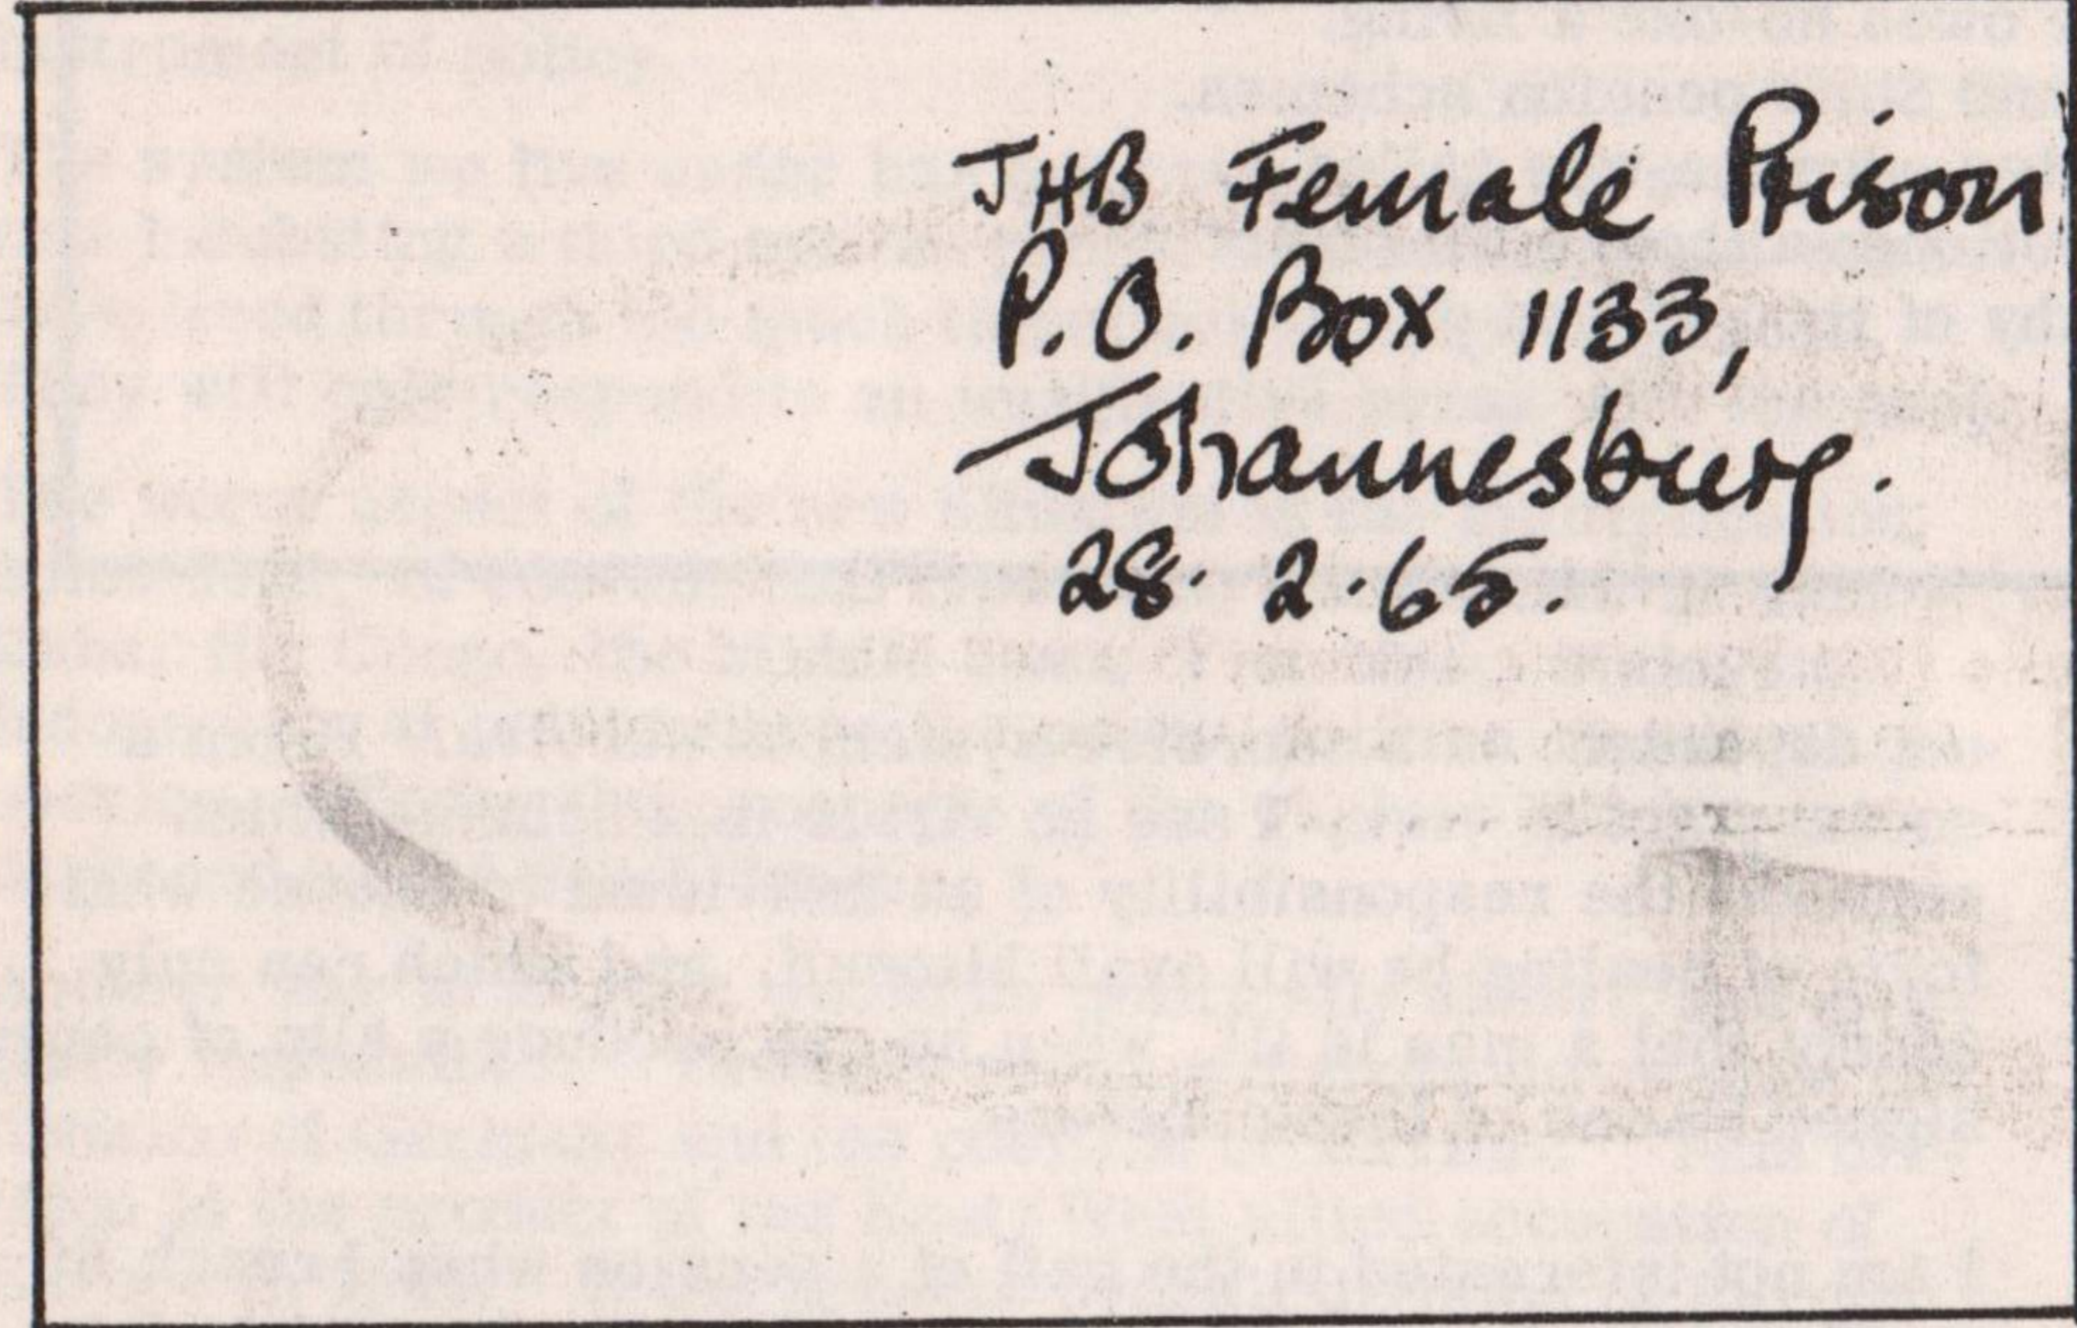 JHB Female Prison
P.O. Box 1133,
Johannesburg.
28.2.65.